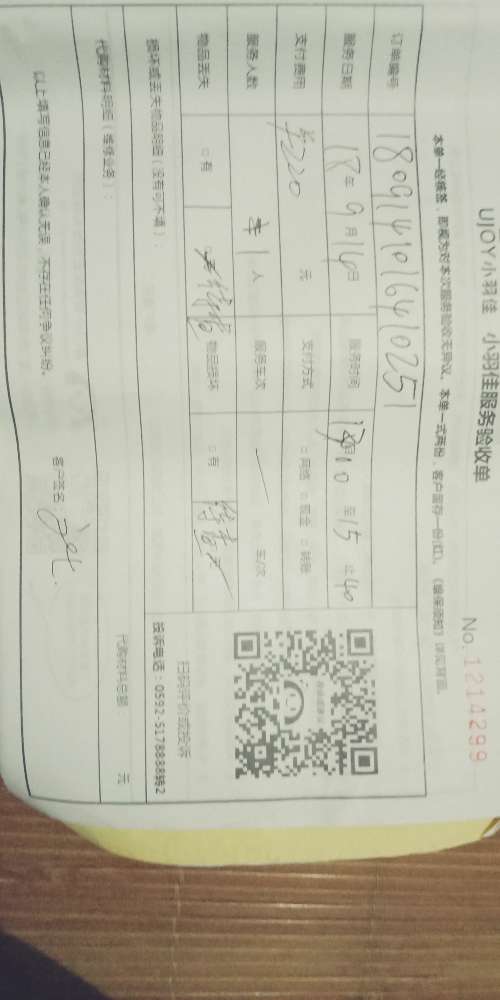 UJOY小羽佳 小羽佳服务验收单
No. 1214299
本单一经核签，即视为对本次服务验收无异议。本单一式两份，客户留存一份(红)。《质保须知》详见背面。
订单编号 1809141016410251
服务日期 18年9月14日 服务时间 10 至 15 止 40
支付费用 ¥220 元 支付方式 □网络 □现金 □转账
服务人数 1人 服务车次 一 车/次
物品丢失 □有 物品损坏 □有
扫码评价或投诉
投诉电话：0592-5178888转2
损坏或丢失物品明细（没有可不填）：
代购材料明细（维修业务）： 代购材料总额： 元
以上填写信息已经本人确认无误，不存在任何争议纠纷。
客户签名：